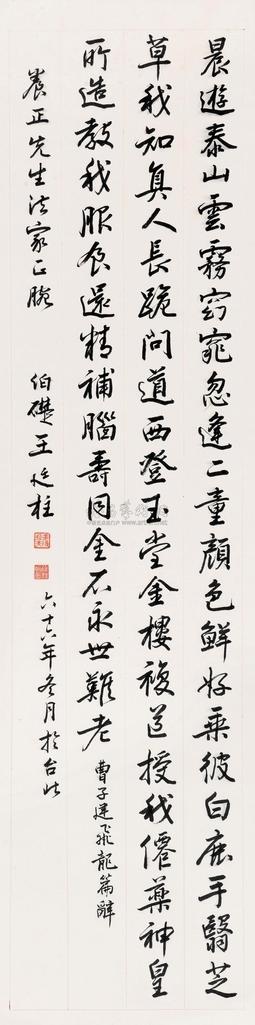 晨遊泰山雲霧窈窕忽逢二童顏色鮮好乘彼白鹿手翳芝
草我知真人長跪問道西登玉堂金樓複道授我僊藥神皇
所造教我服食還精補腦壽同金石永世難老
曹子建飛龍篇辭
養正先生法家正腕
伯礎王廷柱
六十六年冬月於台北